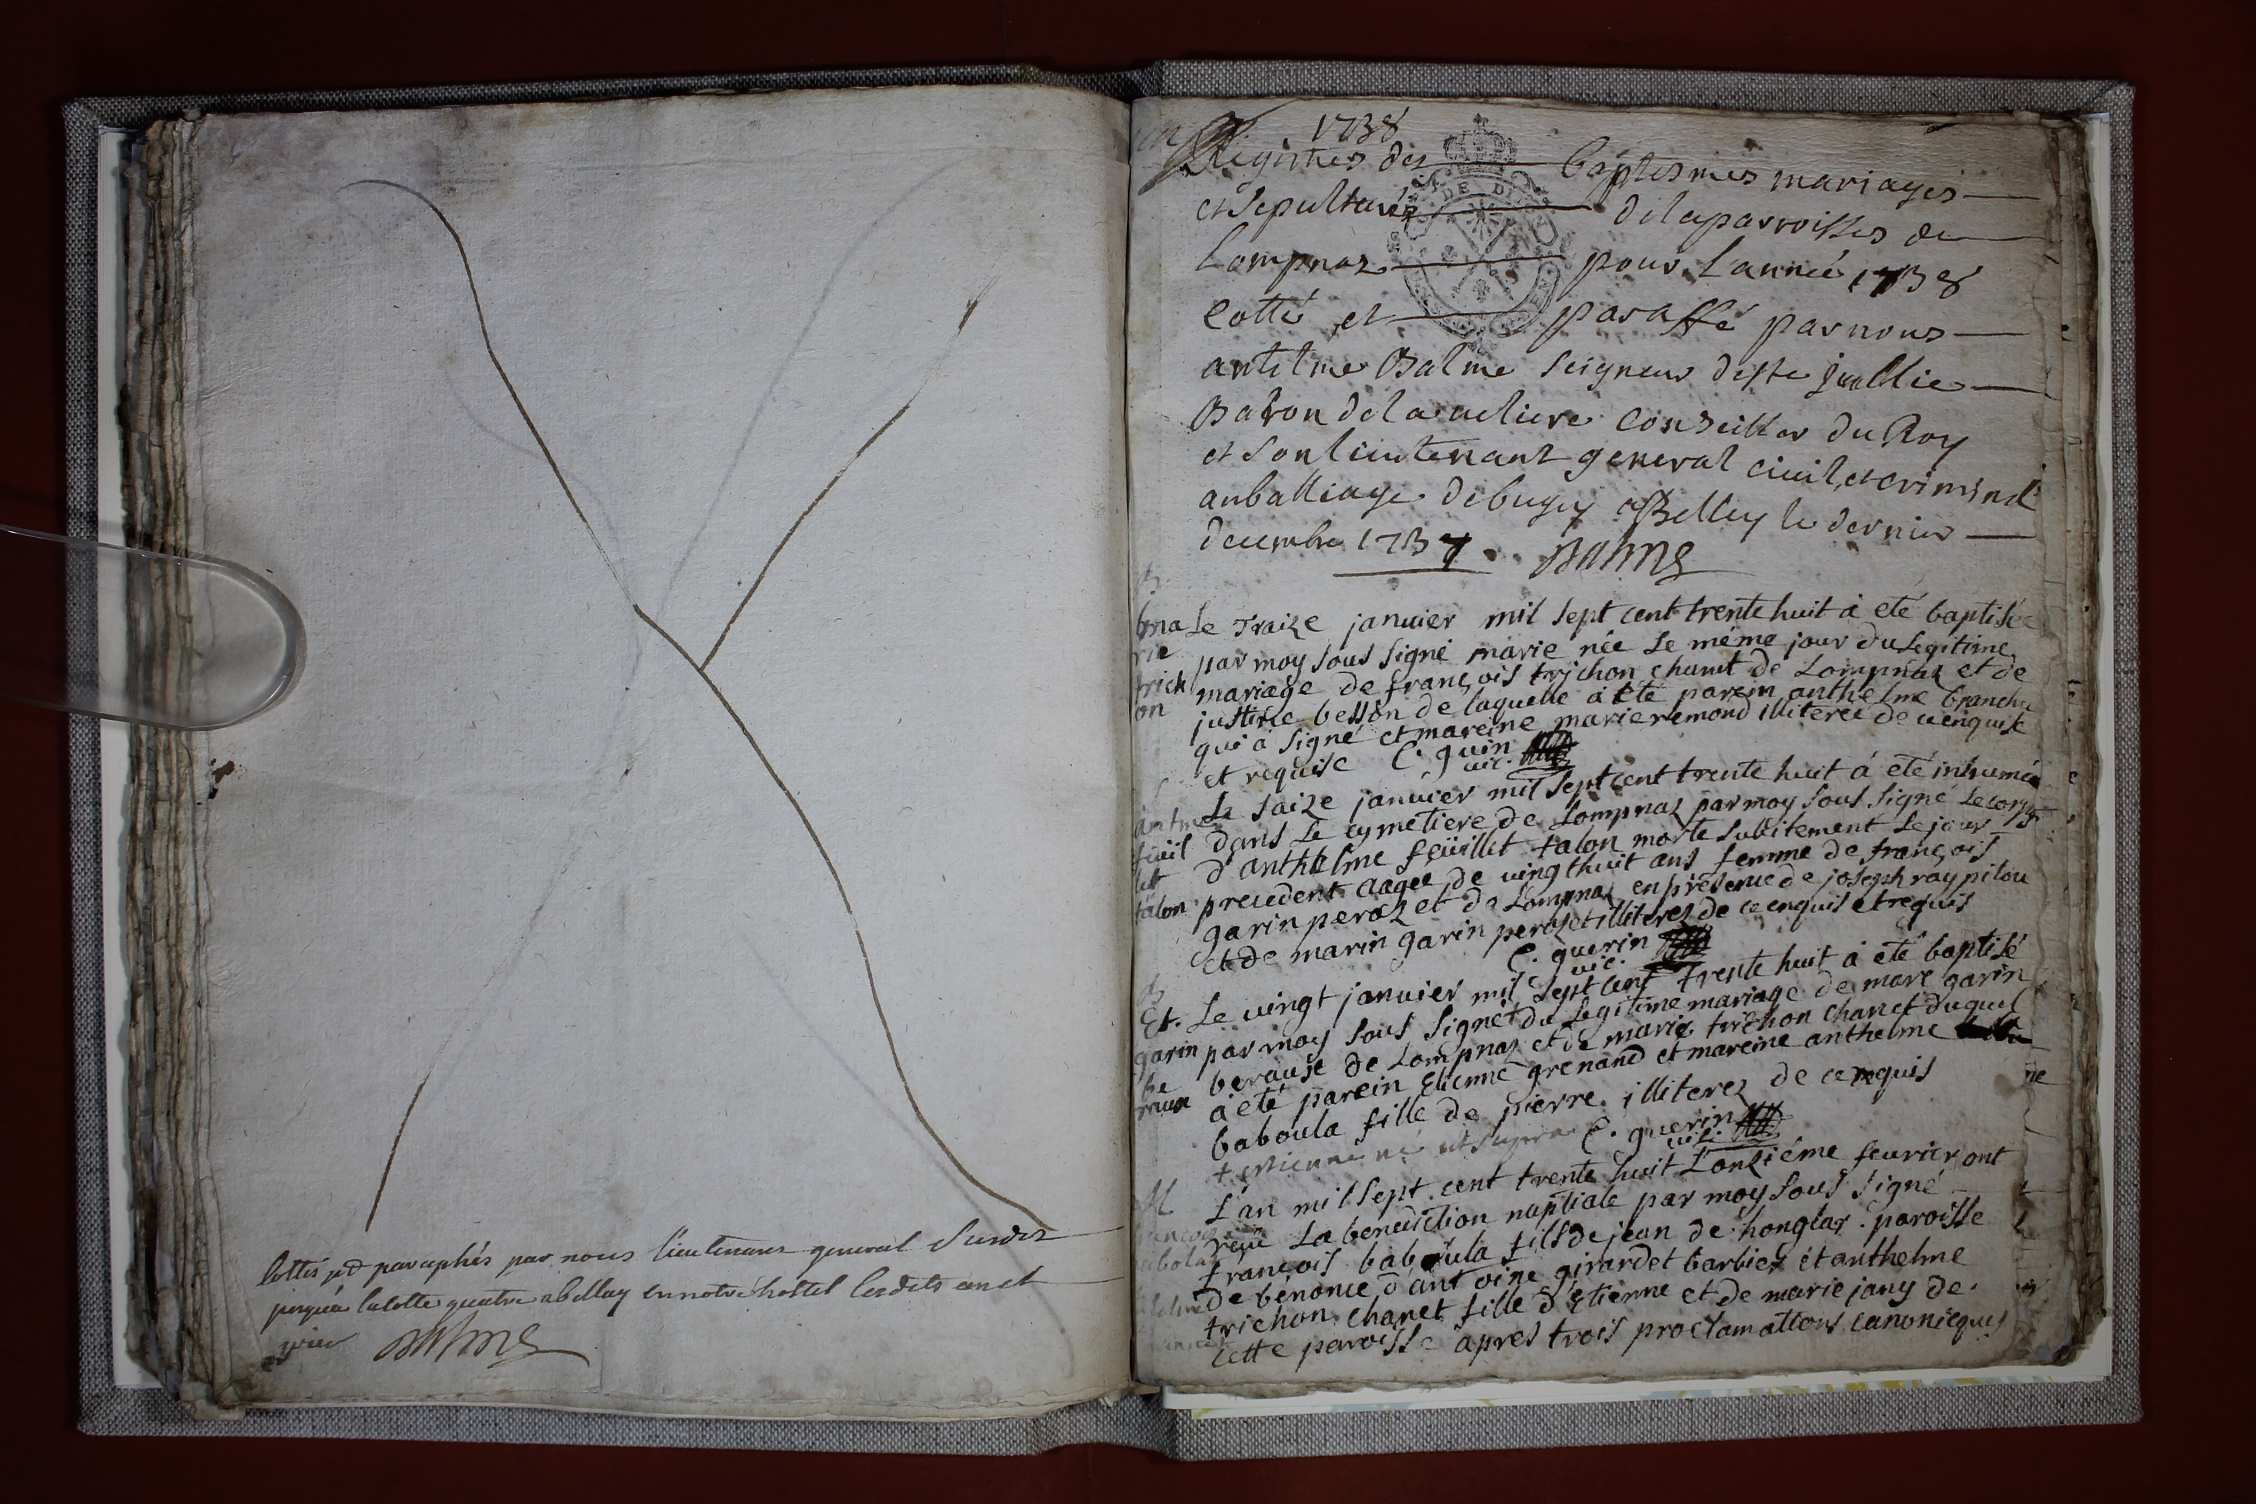 Cottés et paraphés par nous lieutenant general Susdit
jusqu'a la cotte quatre a bellay en notre hostel lesdits an et
jour Balme
1738
Registres des baptesmes mariages
et Sepultures de la parroisses de
Lompnaz pour L'année 1738
Cotté et paraffé par nous
antelme Balme Seigneur de Ste jullie
Baron de la veliere Conseiller du Roy
et Son lieutenant general civil et criminel
au balliage de bugey a Belley le dernier
decembre 1737. Balme
B
ma
rie
trich
on
Le Traize janvier mil sept cent trente huit à eté baptisée
par moy sous signé marie née Le méme jour du Legitime
mariage de françois trichon chanet de Lompnaz et de
justine besson de laquelle à eté parein anthelme branchu
qui à signé et mareine marie remond illiterée de ce enquise
et requise C. guerin
vic.
feüil
let
talon
Le saize janvier mil sept cent trente huit à eté inhumée
dans Le cymetiere de Lompnaz par moy sous signé Le corps
d'anthelme feüillet talon morte subitement Le jour
precedent aagée de vingt huit ans femme de françois
garin peroz et de Lompnaz en presence de joseph ray pitou
et de marin garin peroz et illiterez de ce enquis et requis
C. guerin
vic.
B
Et.
garin
be
rause
Le vingt janvier mil sept cent trente huit à eté baptisé
par moy sous signé + du Legitime mariage de marc garin
berause de Lompnaz et de marie trichon chanet duquel
à eté parein Etienne grenand et mareine anthelme
baboula fille de pierre illiterez de ce requis
+ estienne né ut supra C. guerin
vic.
M
L'an mil sept cent trente huit L'onziéme fevrier ont
reçu La benediction nuptiale par moy sous signé
françois baboula fils de jean de honglas paroisse
de bénonce d'antoine girardet barbier et anthelme
trichon chanet fille d'Etienne et de marie jany de
cette paroisse apres trois proclamations canonicques